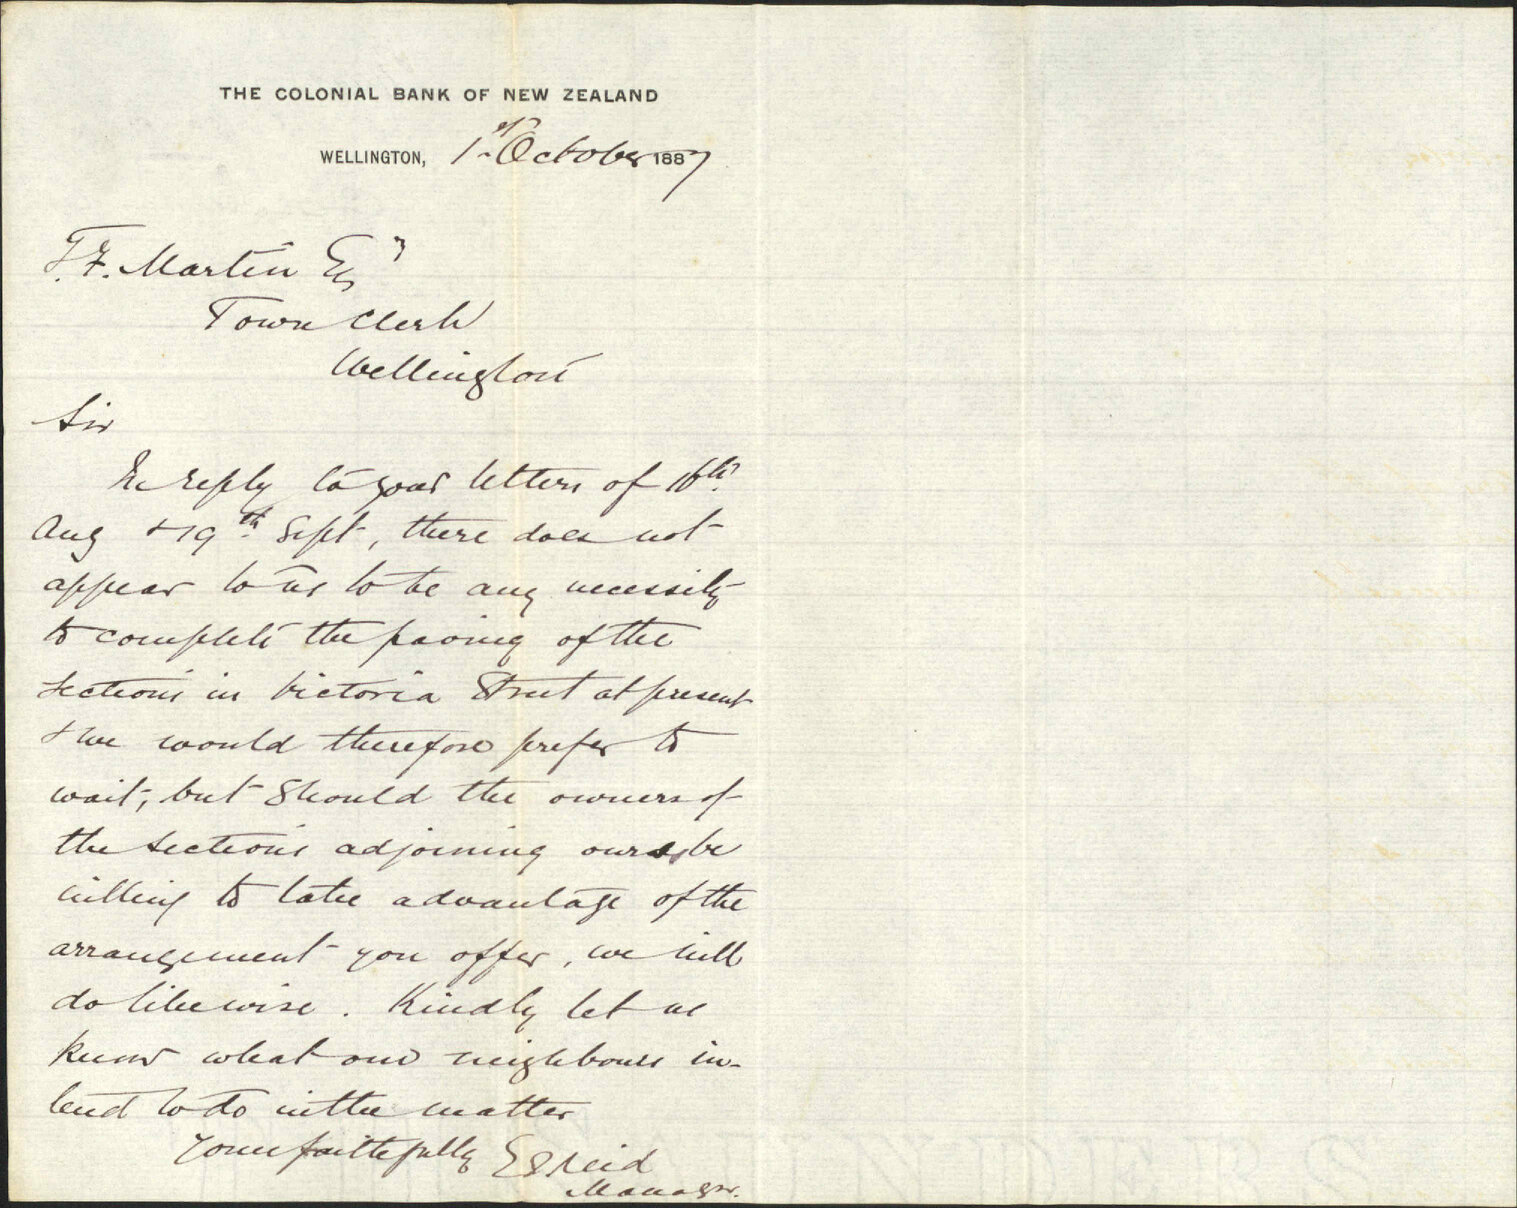 THE COLONIAL BANK OF NEW ZEALAND
WELLINGTON, 1st October 1887
F. F. Martin Esqr
Town Clerk
Wellington
Sir
In reply to your letters of 16th
Aug & 19th Sept, there does not
appear to us to be any necessity
to complete the paving of the
sections in Victoria Street at present
& we would therefore prefer to
wait, but should the owners of
the sections adjoining ours be
willing to take advantage of the
arrangement you offer, we will
do likewise. Kindly let us
know what our neighbours in-
tend to do in the matter
Yours faithfully E Reid
Manager.